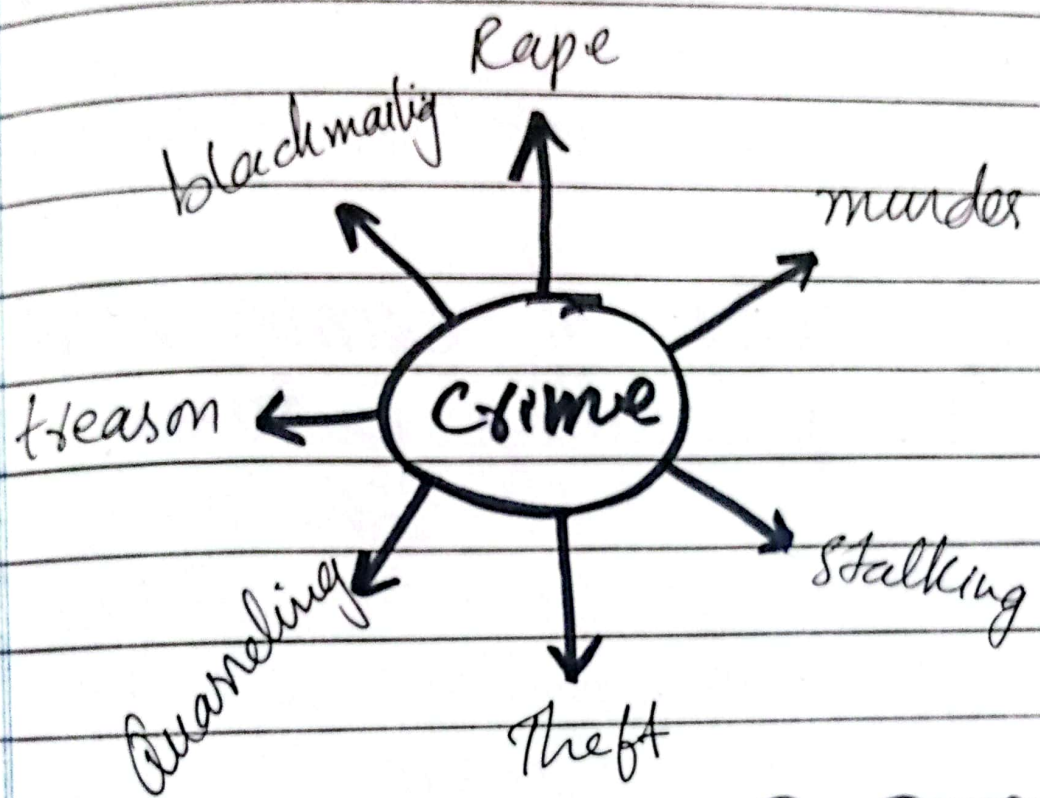 Rape
blackmailig
murder
crime
treason
stalking
Quarreling
Theft